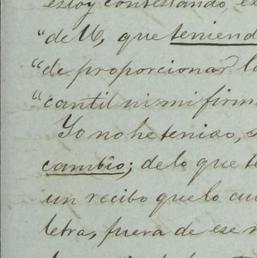 estoy contestando, e
"de U, que teniend
"de proporcionar l
"cantil ni mi firm
Yo no he tenido, s
cambio; de lo que t
un recibo que lo cu
letra, fuera de ese r